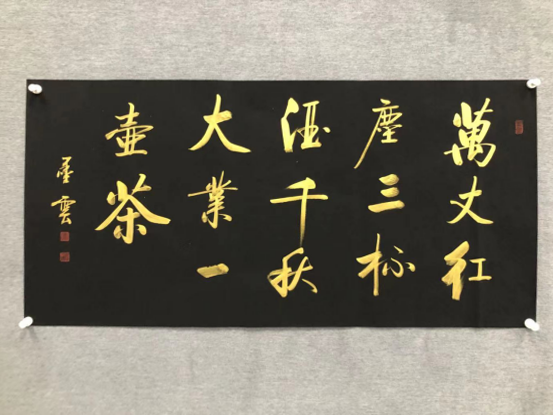 萬丈紅
塵三杯
酒千秋
大業一
壺茶
墨雲